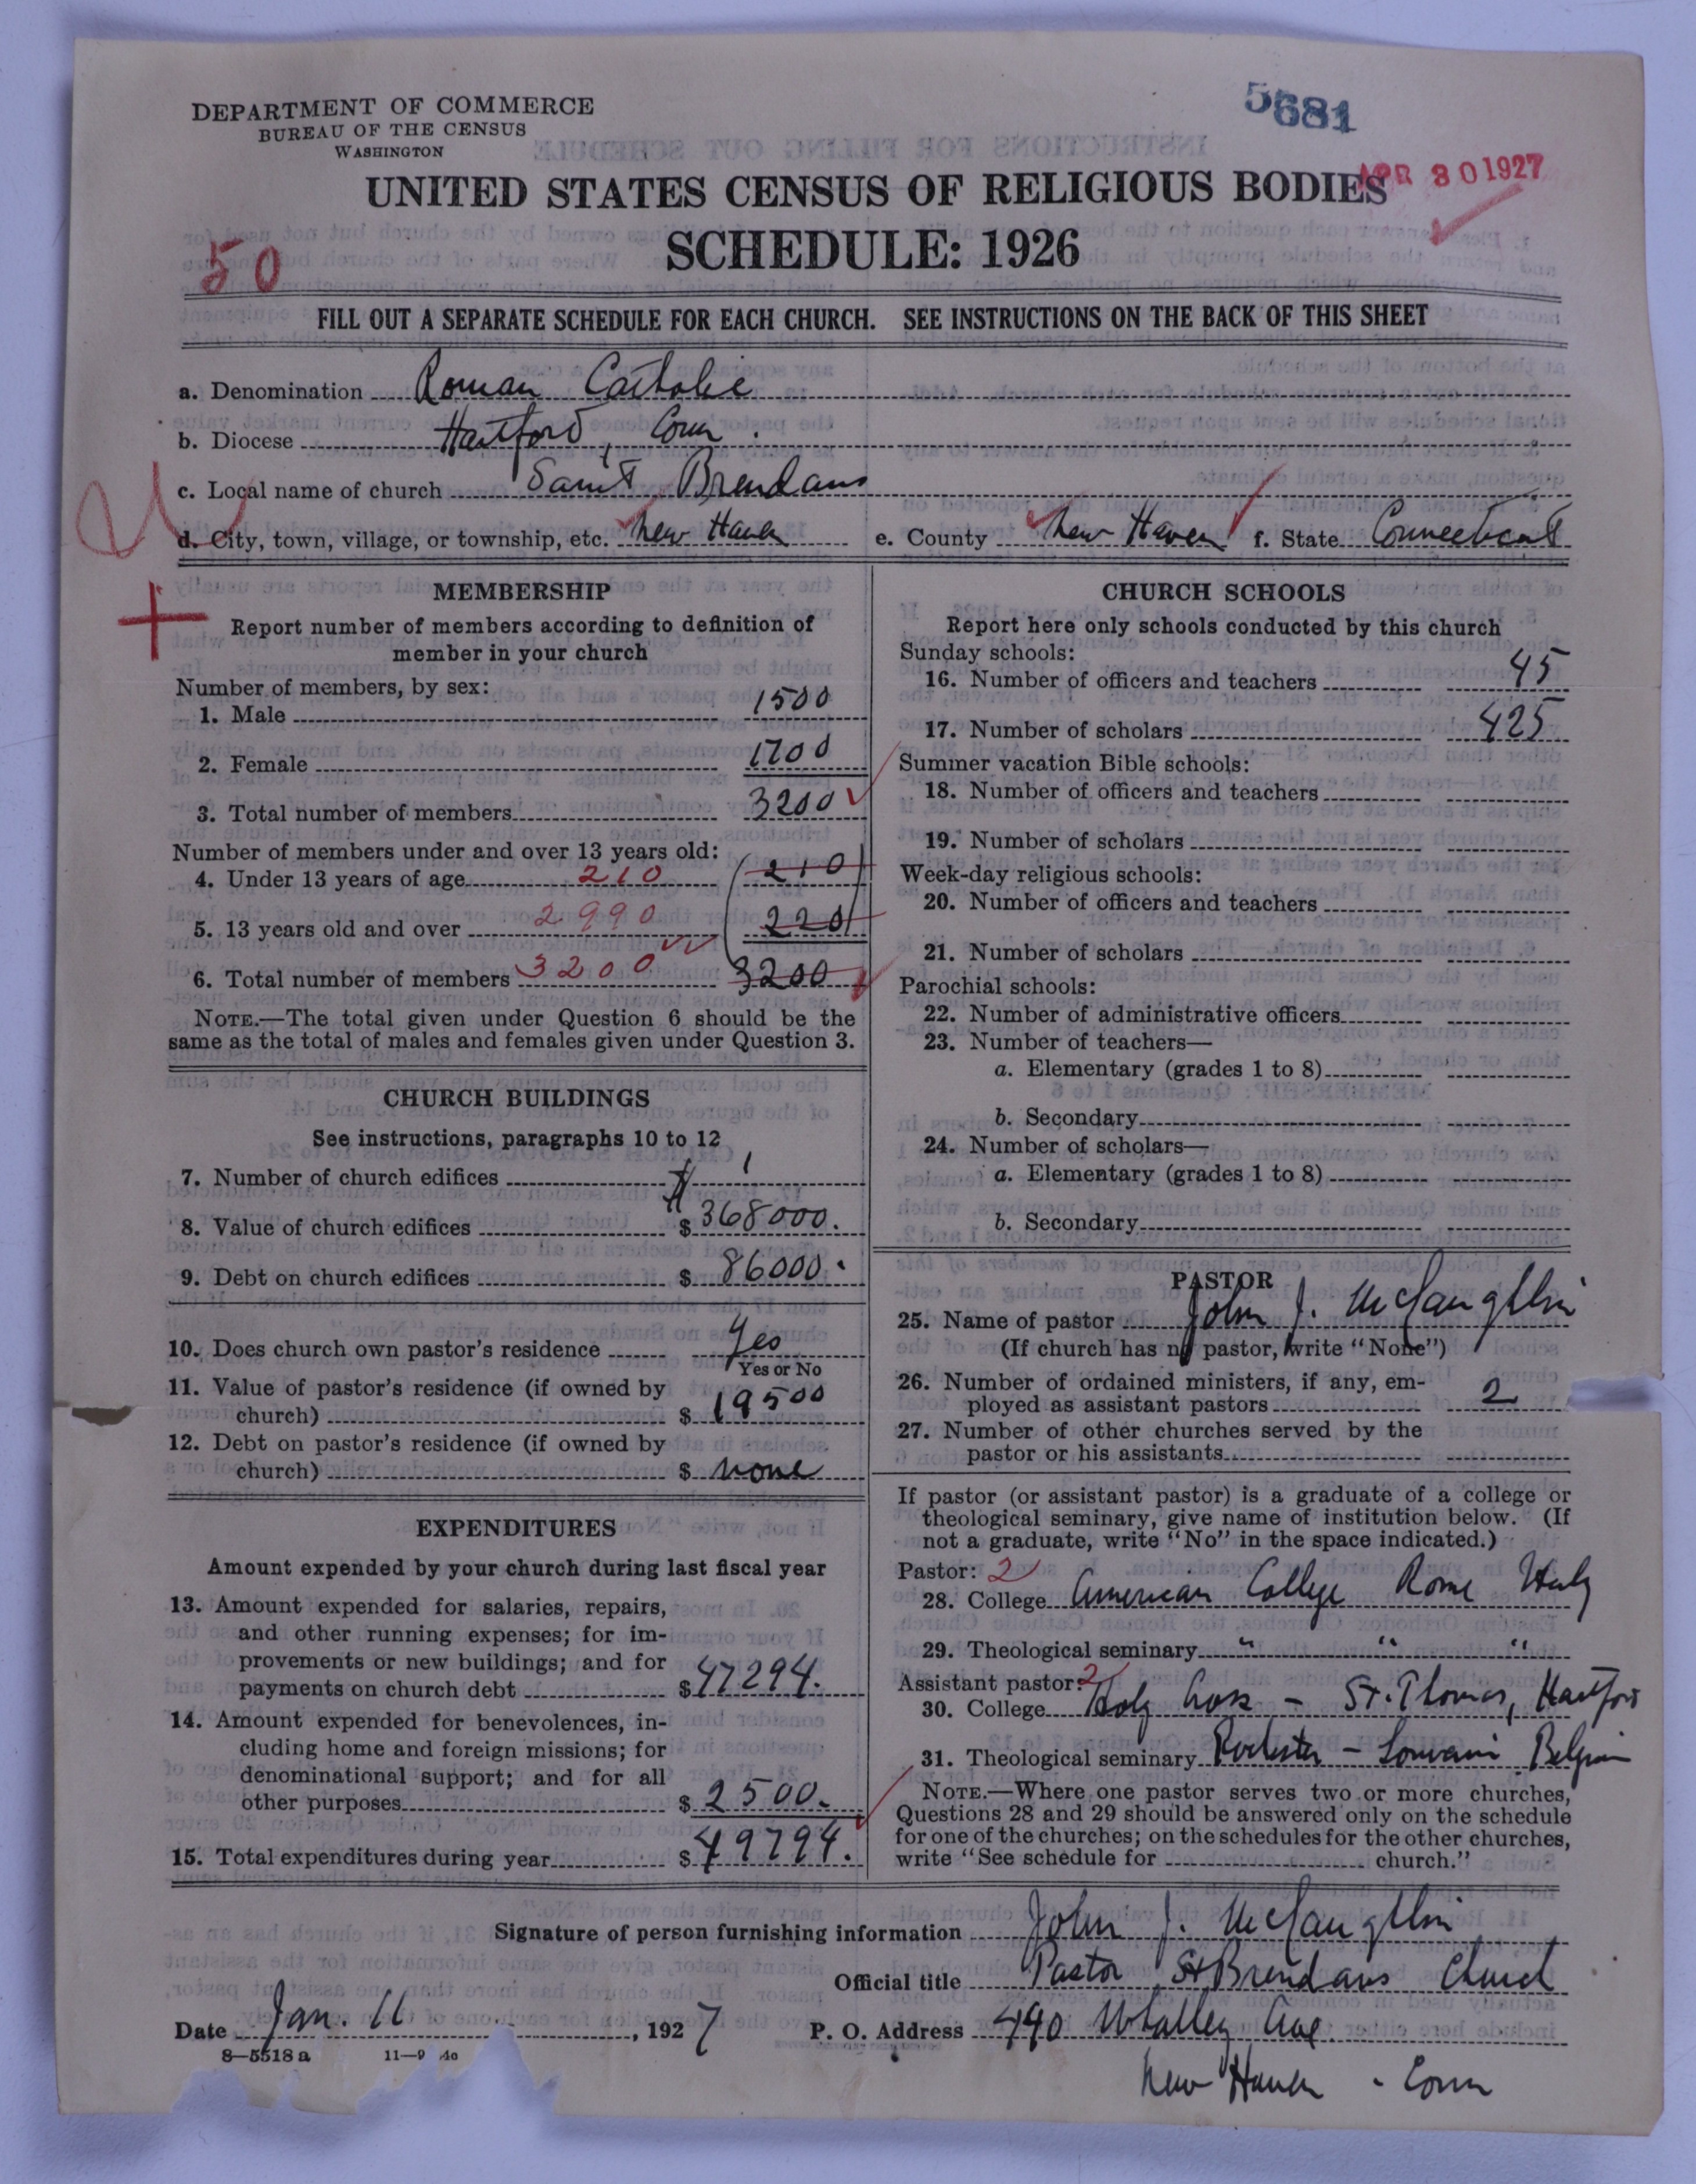 DEPARTMENT OF COMMERCE
BUREAU OF THE CENSUS
WASHINGTON
5681
UNITED STATES CENSUS OF RELIGIOUS BODIES
APR 30 1927
SCHEDULE: 1926
50
FILL OUT A SEPARATE SCHEDULE FOR EACH CHURCH. SEE INSTRUCTIONS ON THE BACK OF THIS SHEET
a. Denomination Roman Catholic
b. Diocese Hartford, Conn.
c. Local name of church Saint Brendans
d. City, town, village, or township, etc. New Haven e. County New Haven f. State Connecticut
MEMBERSHIP
Report number of members according to definition of
member in your church
Number of members, by sex:
1. Male 1500
2. Female 1700
3. Total number of members 3200
Number of members under and over 13 years old:
4. Under 13 years of age 210 210
5. 13 years old and over 2990 220
6. Total number of members 3200 3200
NOTE.—The total given under Question 6 should be the
same as the total of males and females given under Question 3.
CHURCH BUILDINGS
See instructions, paragraphs 10 to 12
7. Number of church edifices 1
8. Value of church edifices $ 368000.
9. Debt on church edifices $ 86000.
10. Does church own pastor's residence Yes
Yes or No
11. Value of pastor's residence (if owned by
church) $ 19500
12. Debt on pastor's residence (if owned by
church) $ none
EXPENDITURES
Amount expended by your church during last fiscal year
13. Amount expended for salaries, repairs,
and other running expenses; for im-
provements or new buildings; and for
payments on church debt $ 47294.
14. Amount expended for benevolences, in-
cluding home and foreign missions; for
denominational support; and for all
other purposes $ 2500.
15. Total expenditures during year $ 49794.
CHURCH SCHOOLS
Report here only schools conducted by this church
Sunday schools:
16. Number of officers and teachers 45
17. Number of scholars 425
Summer vacation Bible schools:
18. Number of officers and teachers
19. Number of scholars
Week-day religious schools:
20. Number of officers and teachers
21. Number of scholars
Parochial schools:
22. Number of administrative officers
23. Number of teachers—
a. Elementary (grades 1 to 8)
b. Secondary
24. Number of scholars—
a. Elementary (grades 1 to 8)
b. Secondary
PASTOR
25. Name of pastor John J. McLaughlin
(If church has no pastor, write "None")
26. Number of ordained ministers, if any, em-
ployed as assistant pastors 2
27. Number of other churches served by the
pastor or his assistants
If pastor (or assistant pastor) is a graduate of a college or
theological seminary, give name of institution below. (If
not a graduate, write "No" in the space indicated.)
Pastor: 2
28. College American College Rome Italy
29. Theological seminary " " "
Assistant pastor: 2
30. College Holy Cross - St. Thomas, Hartford
31. Theological seminary Rochester - Louvain Belgium
NOTE.—Where one pastor serves two or more churches,
Questions 28 and 29 should be answered only on the schedule
for one of the churches; on the schedules for the other churches,
write "See schedule for church."
Signature of person furnishing information John J. McLaughlin
Official title Pastor St Brendans Church
Date Jan. 11, 1927 P. O. Address 490 Whalley Ave.
8—5518 a 11—9
New Haven - Conn